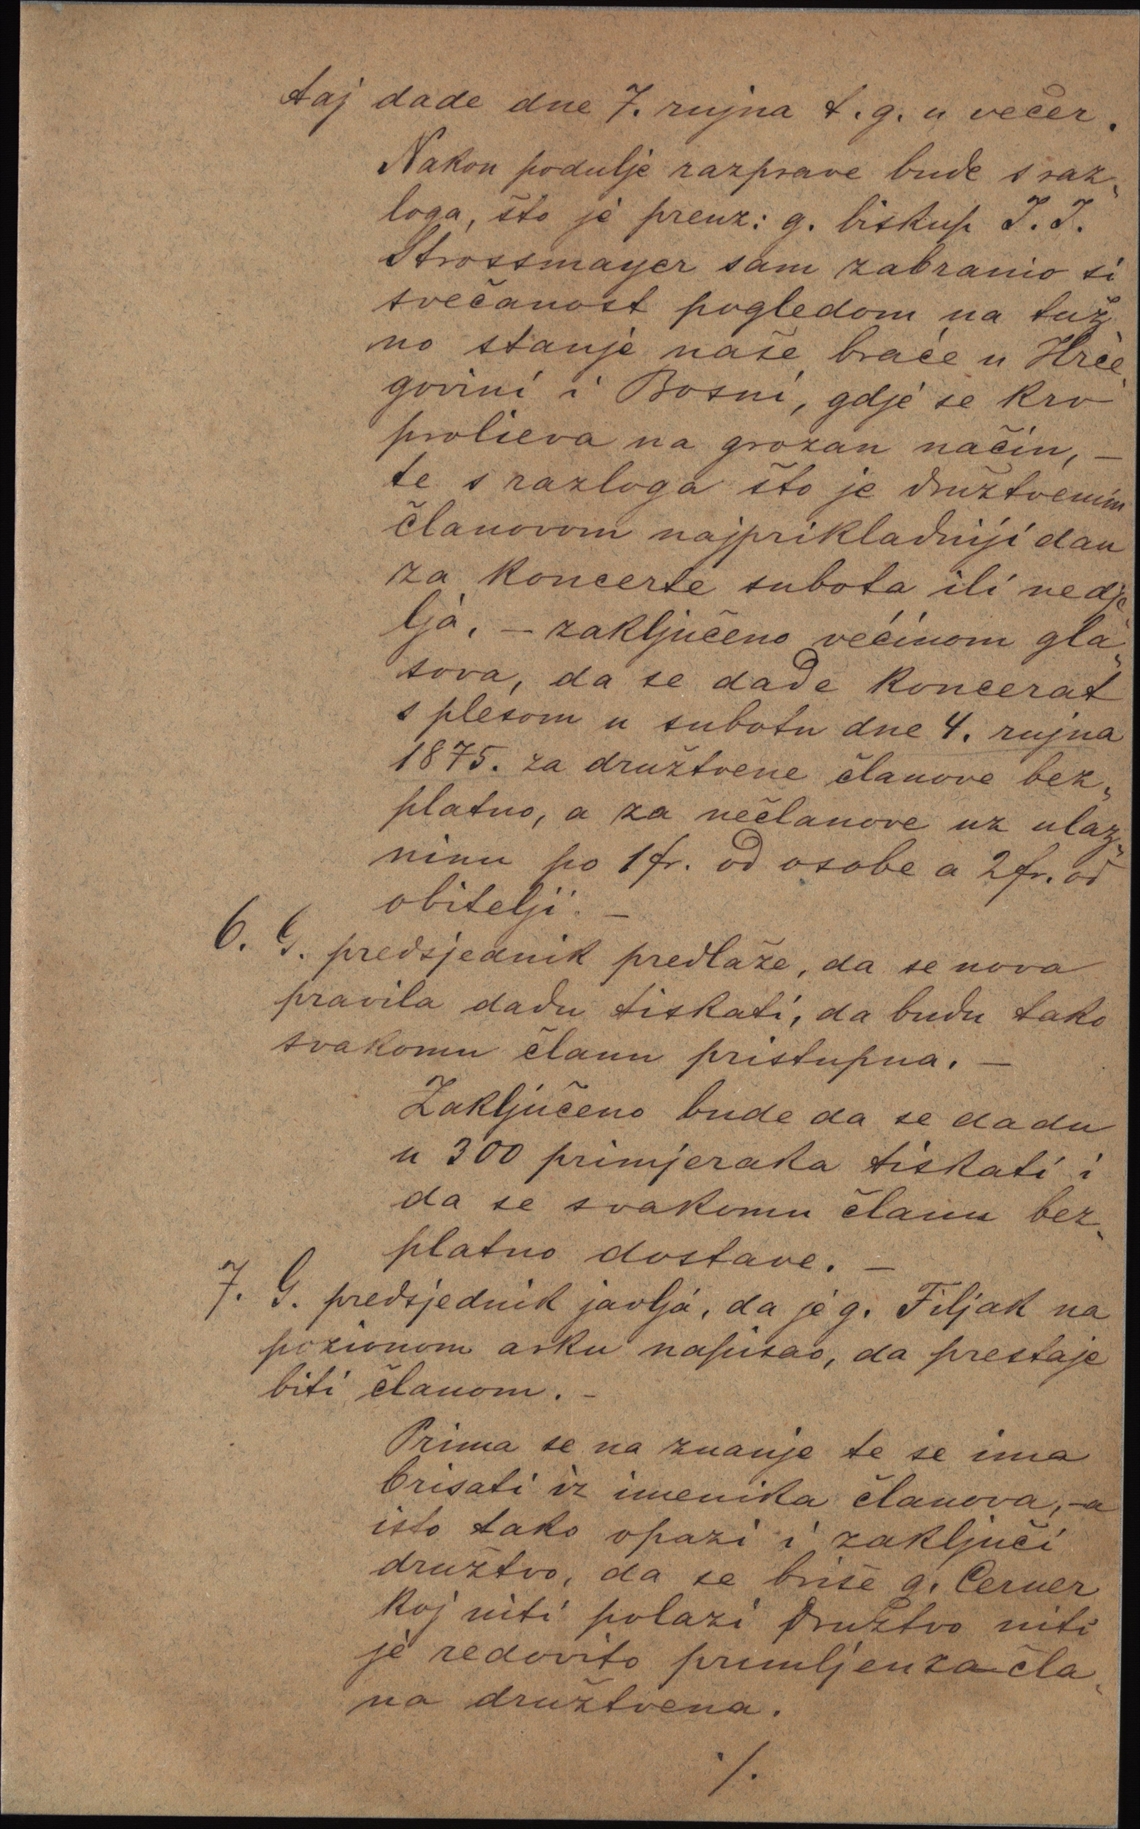 taj dade dne 7. rujna t. g. u večer.
Nakon podulje razprave bude s raz„
loga, što je preuz: g. biskup J. J.
Strossmayer sam zabranio si
svečanost pogledom na tuž„
no stanje naše braće u Hrče„
govini i Bosni, gdje se krv
prolieva na grozan način, –
te s razloga što je družtvenim
članovom najprikladniji dan
za koncerte subota ili nedje
lja, – zaključeno većinom gla„
sova, da se dade koncerat
s plesom u subotu dne 4. rujna
1875. za družtvene članove bez„
platno, a za nečlanove uz ulaz„
ninu po 1 fr. od osobe a 2 fr. od
obitelji. –
6. G. predsjednik predlaže, da se nova
pravila dadu tiskati, da budu tako
svakomu članu pristupna. –
Zaključeno bude da se dadu
u 300 primjeraka tiskati i
da se svakomu članu bez„
platno dostave. –
7. G. predsjednik javlja, da je g. Filjak na
pozivnom arku napisao, da prestaje
biti članom. –
Prima se na znanje te se ima
brisati iz imenika članova, – a
isto tako opazi i zaključi
družtvo, da se briše g. Cerner
koj niti polazi družtvo niti
je redovito primljen za čla„
na družtvena.
·/.